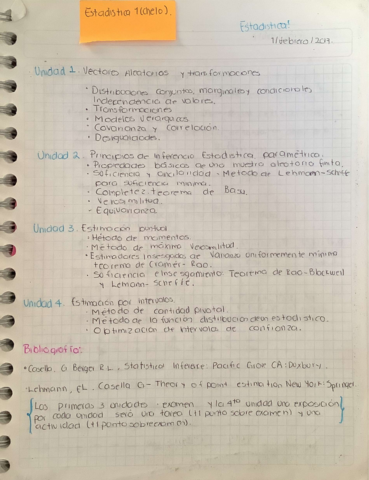 Estadística 1 (Chelo).
Estadística!
1/febrero/2017.
Unidad 1. Vectores Aleatorios y transformaciones
· Distribuciones conjuntas, marginales y condicionales
Independencia de valores.
· Transformaciones
· Modelos Jerárquicos
· Covarianza y correlación
· Desigualdades.
Unidad 2. Principios de Inferencia Estadística paramétrica.
· Propiedades básicas de una muestra aleatoria finita.
· Suficiencia y ancilaridad - Método de Lehmann-Scheffé
para suficiencia mínima.
· Completez: teorema de Basu
· Verosimilitud.
· Equivarianza.
Unidad 3. Estimación puntual
· Método de momentos
· Método de máximo verosimilitud.
· Estimadores insesgados de varianza uniformemente mínima
teorema de Cramér-Rao.
· Suficiencia e Insesgamiento: Teorema de Rao-Blackwell
y Lemann-Scheffé.
Unidad 4. Estimación por intervalos
· Método de cantidad pivotal
· Método de la función distribución de un estadístico.
· Optimización de intervalos de confianza.
Bibliografía:
· Casella, G. Berger R.L. Statistical Inference: Pacific Grove CA: Duxbury.
· Lehmann, E.L. Casella G- Theory of point estimation New York: Springer
Los primeros 3 unidades examen y la 4ta unidad una exposición
por cada unidad será una tarea (+1 punto sobre examen) y una
actividad (+1 punto sobre examen).